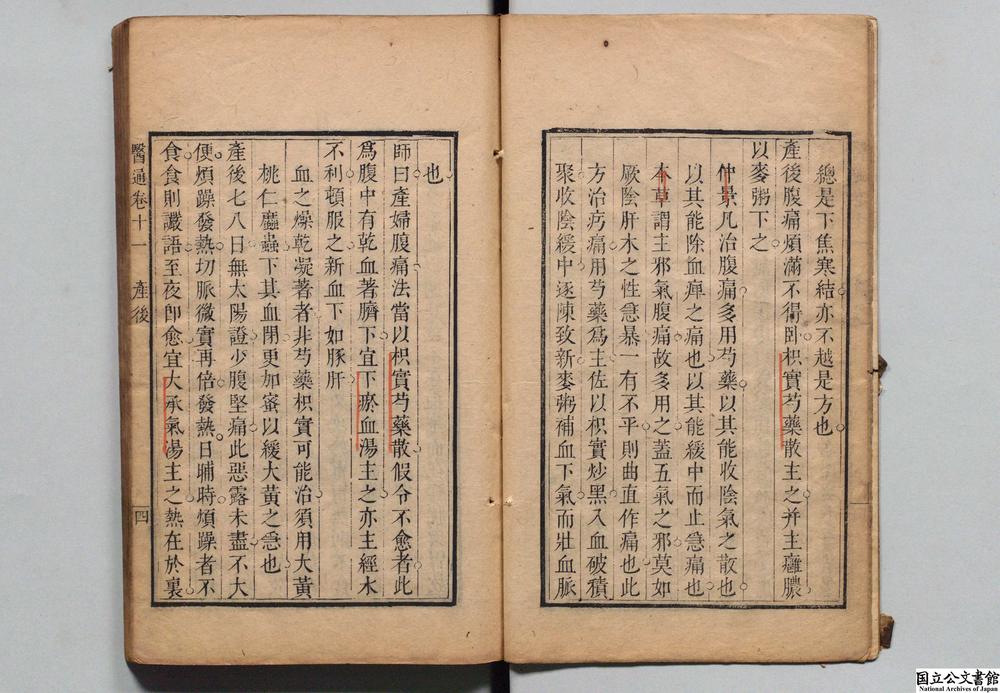 總是下焦寒結亦不越是方也
產後腹痛煩滿不得臥枳實芍藥散主之并主癰膿
以麥粥下之
仲景凡治腹痛多用芍藥以其能收陰氣之散也
以其能除血痺之痛也以其能緩中而止急痛也
本草謂主邪氣腹痛故多用之蓋五氣之邪莫如
厥陰肝木之性急暴一有不平則曲直作痛也此
方治疠痛用芍藥爲主佐以枳實炒黑入血破積
聚收陰緩中逐陳致新麥粥補血下氣而壯血脈
也
師曰產婦腹痛法當以枳實芍藥散假令不愈者此
爲腹中有乾血著臍下宜下瘀血湯主之亦主經水
不利頓服之新血下如豚肝
血之燥乾凝著者非芍藥枳實可能治須用大黃
桃仁䗪蟲下其血閉更加蜜以緩大黃之急也
產後七八日無太陽證少腹堅痛此惡露未盡不大
便煩躁發熱切脈微實再倍發熱日晡時煩躁者不
食食則讝語至夜即愈宜大承氣湯主之熱在於裏
醫通卷十一 產後 四
国立公文書館
National Archives of Japan